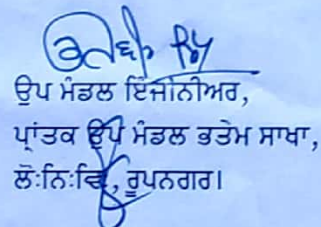 ਉਪ ਮੰਡਲ ਇੰਜੀਨੀਅਰ,
ਪ੍ਰਾਂਤਕ ਉਪ ਮੰਡਲ ਭਤੇਮ ਸਾਖਾ,
ਲੋ:ਨਿ:ਵਿ, ਰੂਪਨਗਰ।